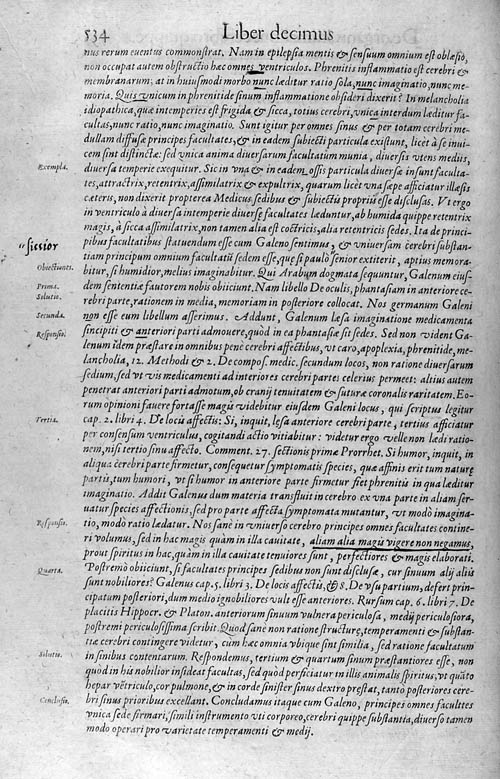 534 Liber decimus
nus rerum euentus commonstrat. Nam in epilepsia mentis & sensuum omnium est oblæsio,
non occupat autem obstructio hæc omnes ventriculos. Phrenitis inflammatio est cerebri &
membranarum; at in huiusmodi morbo nunc læditur ratio sola, nunc imaginatio, nunc me-
moria. Quis vnicum in phrenitide sinum inflammatione obsideri dixerit? In melancholia
idiopathica, quæ intemperies est frigida & sicca, totius cerebri, vnica interdum læditur fa-
cultas, nunc ratio, nunc imaginatio. Sunt igitur per omnes sinus & per totam cerebri me-
dullam diffusæ principes facultates, & in eadem subiecti particula existunt, licèt à se inui-
cem sint distinctæ: sed vnica anima diuersarum facultatum munia, diuersis vtens mediis,
Exempla. diuersa temperie exequitur. Sic in vna & in eadem ossis particula diuersæ insunt faculta-
tes, attractrix, retentrix, assimilatrix & expultrix, quarum licèt vna sæpe afficiatur illæsis
cæteris, non dixerit propterea Medicus sedibus & subiectis propriis esse disclusas. Vt ergo
in ventriculo à diuersa intemperie diuersæ facultates læduntur, ab humida quippe retentrix
magis, à sicca assimilatrix, non tamen alia est coctricis, alia retentricis sedes. Ita de princi-
siccior pibus facultatibus statuendum esse cum Galeno sentimus, & vniuersam cerebri substan-
tiam principum omnium facultatũ sedem esse, que si paulò senior extiterit, aptius memora-
Obiectiones. bitur, si humidior, melius imaginabitur. Qui Arabum dogmata sequuntur, Galenum eius-
Prima. dem sententiæ fautorem nobis obiiciunt. Nam libello De oculis, phantasiam in anteriore ce-
Solutio. rebri parte, rationem in media, memoriam in posteriore collocat. Nos germanum Galeni
Secunda. non esse eum libellum asserimus. Addunt, Galenum læsa imaginatione medicamenta
Responsio. sincipiti & anteriori parti admouere, quòd in ea phantasiæ sit sedes. Sed non vident Ga-
lenum idem præstare in omnibus penè cerebri affectibus, vt caro, apoplexia, phrenitide, me-
lancholia, 12. Methodi & 2. De compos. medic. secundum locos, non ratione diuersarum
sedium, sed vt vis medicamenti ad interiores cerebri partes celerius permeet: altius autem
penetrat anteriori parti admotum, ob cranij tenuitatem & suturæ coronalis raritatem. Eo-
rum opinioni fauere fortasse magis videbitur eiusdem Galeni locus, qui scriptus legitur
Tertia. cap. 2. libri 4. De locis affectis: Si, inquit, læsa anteriore cerebri parte, tertius afficiatur
per consensum ventriculus, cogitandi actio vitiabitur: videtur ergo velle non lædi ratio-
nem, nisi tertio sinu affecto. Comment. 27. sectionis primæ Prorrhet. Si humor, inquit, in
aliqua cerebri parte firmetur, consequetur symptomatis species, quæ affinis erit tum naturæ
partis, tum humori, vt si humor in anteriore parte firmetur fiet phrenitis in qua læditur
imaginatio. Addit Galenus dum materia transfluit in cerebro ex vna parte in aliam ser-
uatur species affectionis, sed pro parte affecta symptomata mutantur, vt modò imagina-
Responsio. tio, modò ratio lædatur. Nos sanè in vniuerso cerebro principes omnes facultates contine-
ri volumus, sed in hac magis quàm in illa cauitate, aliam alia magis vigere non negamus,
prout spiritus in hac, quàm in illa cauitate tenuiores sunt, perfectiores & magis elaborati.
Quarta. Postremò obiiciunt, si facultates principes sedibus non sunt disclusæ, cur sinuum alij aliis
sunt nobiliores? Galenus cap. 5. libri 3. De locis affectis, & 8. De vsu partium, defert prin-
cipatum posteriori, dum medio ignobiliores vult esse anteriores. Rursum cap. 6. libri 7. De
placitis Hippocr. & Platon. anteriorum sinuum vulnera periculosa, medij periculosiora,
postremi periculosissima scribit. Quod sanè non ratione structuræ, temperamenti & substan-
tiæ cerebri contingere videtur, cum hæc omnia vbique sint similia, sed ratione facultatum
Solutio. in sinibus contentarum. Respondemus, tertium & quartum sinum præstantiores esse, non
quòd in his nobilior insideat facultas, sed quòd perficiatur in illis animalis spiritus, vt quãto
hepar vẽtriculo, cor pulmone, & in corde sinister sinus dextro præstat, tanto posteriores cere-
Conclusio. bri sinus prioribus excellant. Concludamus itaque cum Galeno, principes omnes facultates
vnica sede firmari, simili instrumento vti corporeo, cerebri quippe substantia, diuerso tamen
modo operari pro varietate temperamenti & medij.